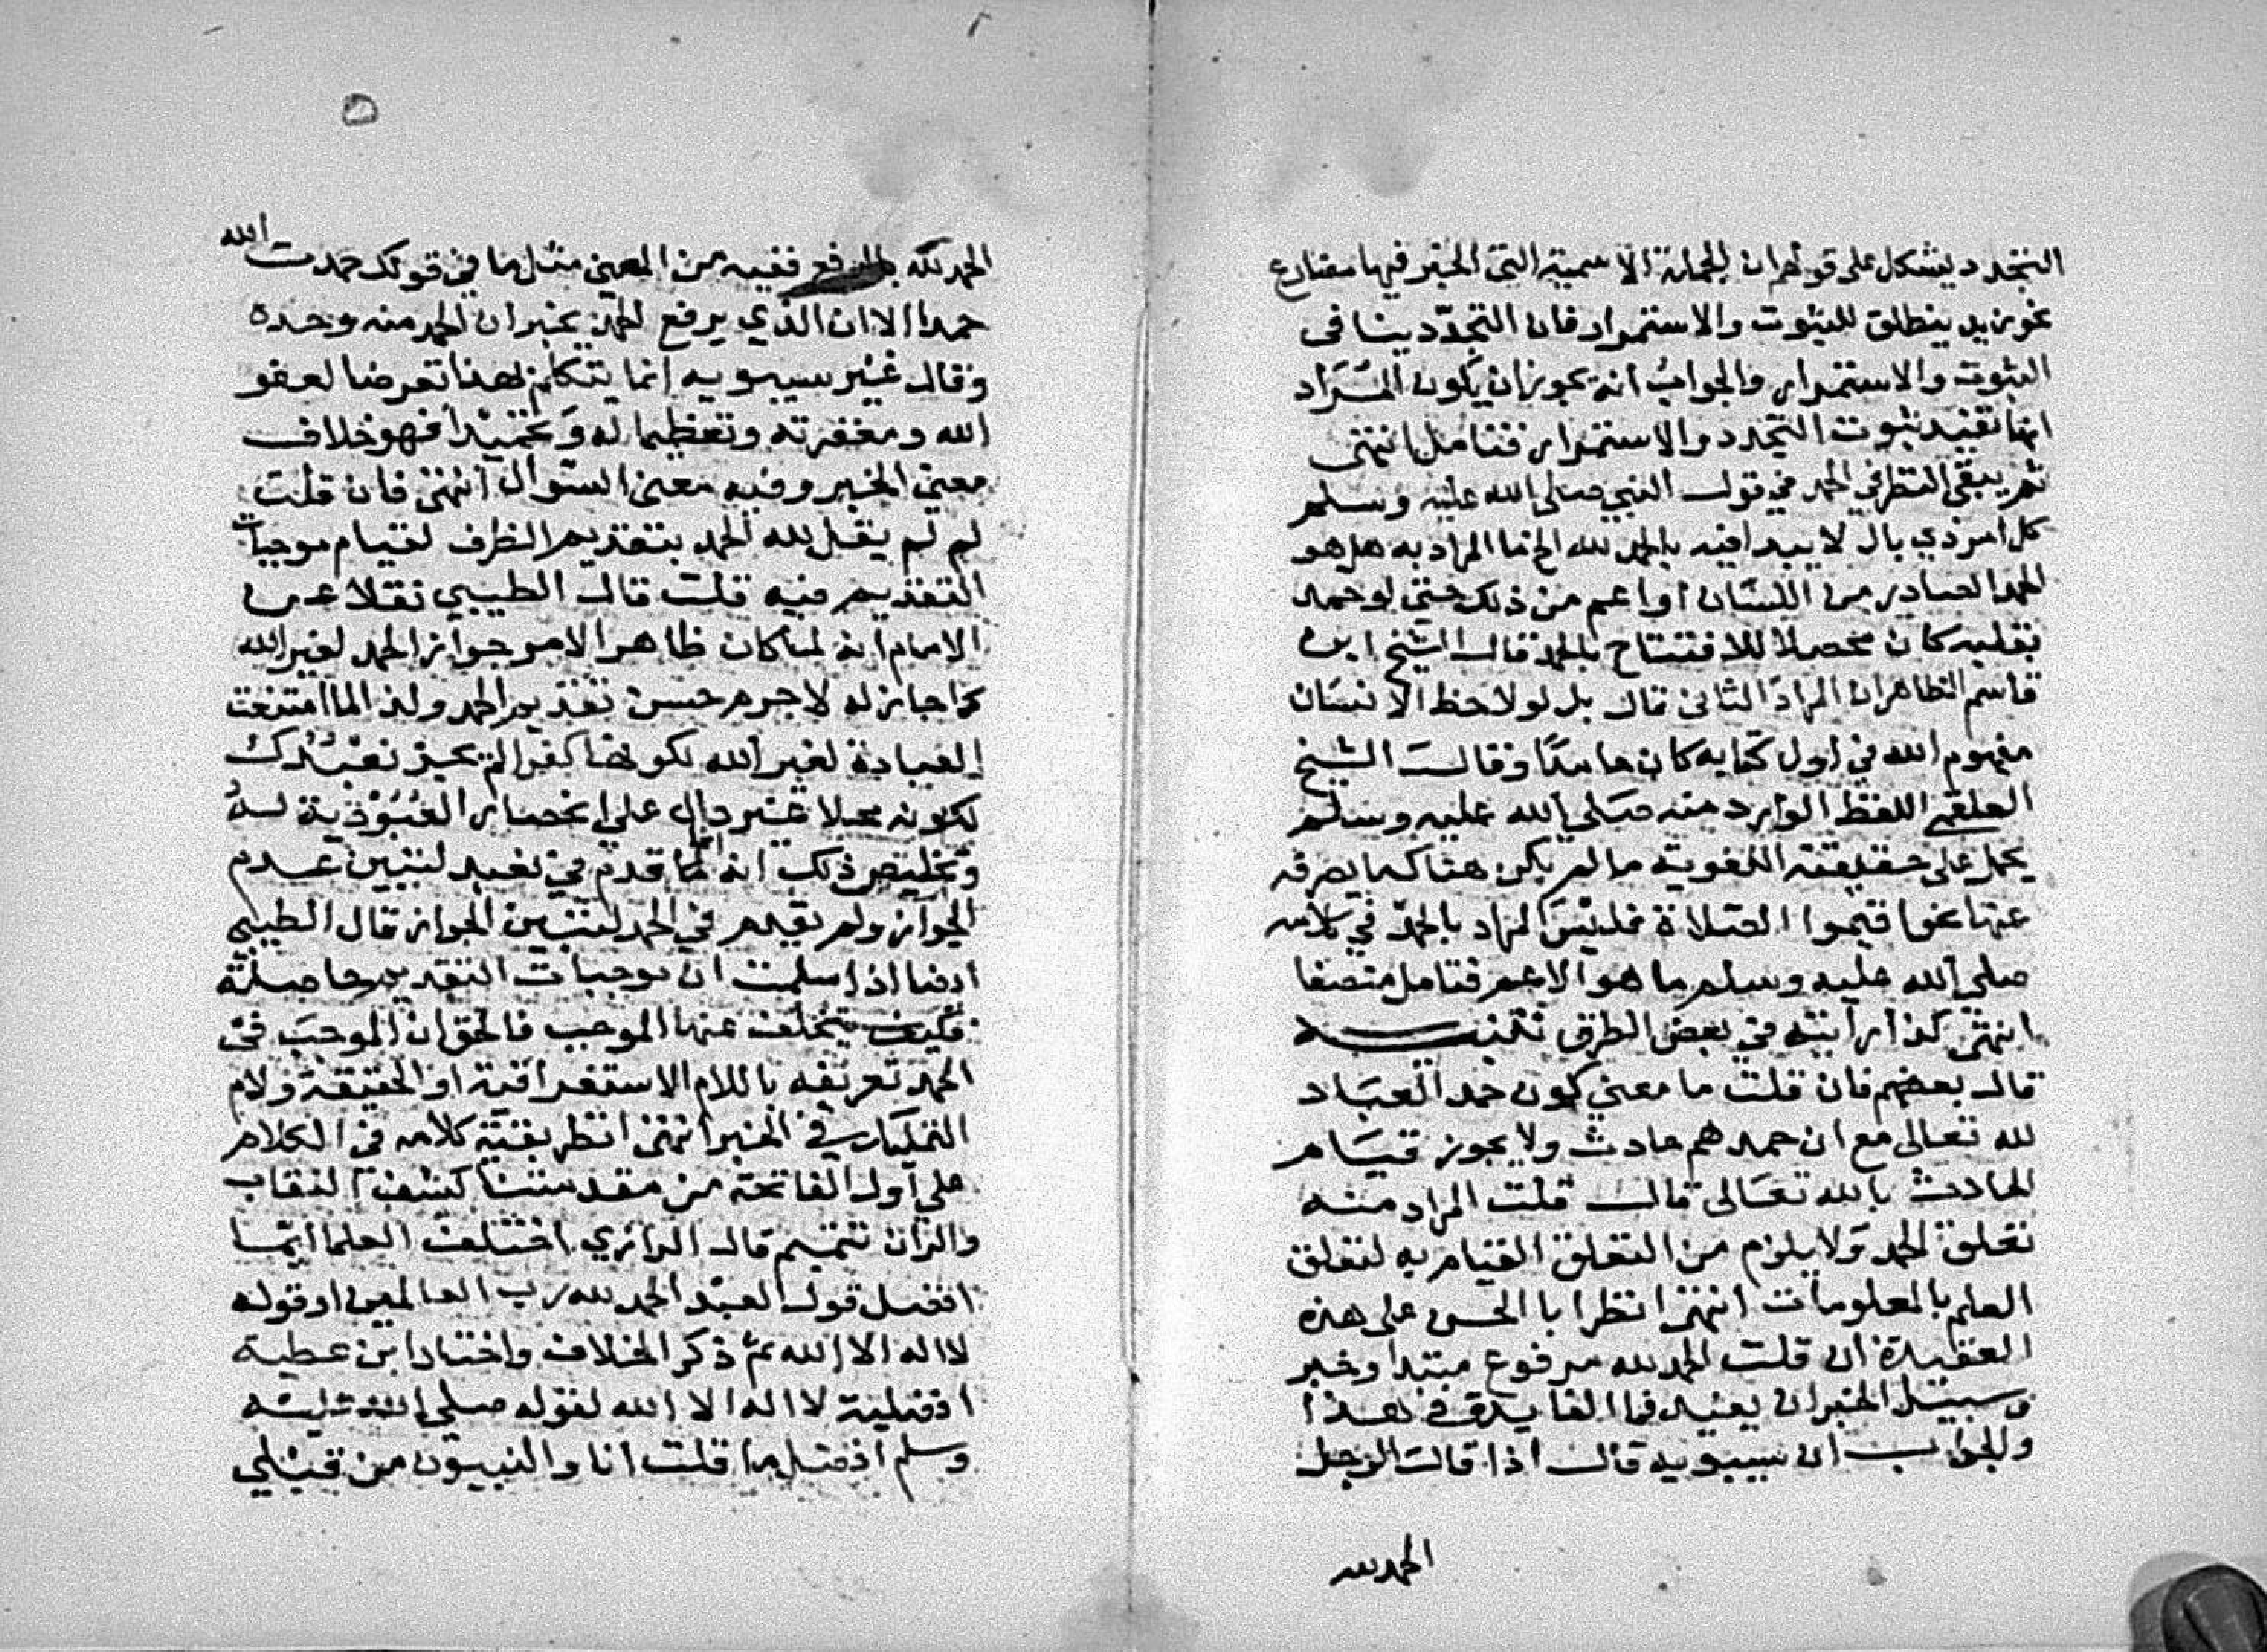 التجدد يشكل على قولهم ان الجملة الاسمية التي الخبر فيها مضارع
نحو زيد ينطلق للثبوت والاستمرار فان التجدد ينافى
الثبوت والاستمرار والجواب انه يجوز ان يكون المراد
انها تفيد ثبوت التجدد والاستمرار فتامل انتهى
ثم يبقى النظر في الحمد في قول النبي صلى الله عليه وسلم
كل امر ذي بال لا يبدا فيه بالحمد لله الخ ما المراد به هل هو
الحمد الصادر من اللسان او اعم من ذلك حتى لو حمد
بقلبه كان محصلا للافتتاح بالحمد قال الشيخ ابن
قاسم الظاهر ان المراد الثانى قال بل لو لاحظ الانسان
مفهوم الله في اول كتابه كان حامدا وقال الشيخ
العلقمي اللفظ الوارد منه صلى الله عليه وسلم
يحمل على حقيقته اللغوية ما لم يكن هناك ما يصرفه
عنها نحو اقيموا الصلاة فليس المراد بالحمد في كلامه
صلى الله عليه وسلم ما هو الاعم فتامل منصفا
انتهى كذا رايته في بعض الطرق تنبيه
قال بعضهم فان قلت ما معنى كون حمد العباد
لله تعالى مع ان حمدهم حادث ولا يجوز قيام
الحادث بالله تعالى قال قلت المراد منه
تعلق الحمد ولا يلزم من التعلق القيام به لتعلق
العلم بالمعلومات انتهى انظر ابا الحسن على هذه
العقيدة ان قلت الحمد لله مرفوع مبتدا وخبر
وسبيل الخبر ان يفيد فما الفايدة في هذا
والجواب ان سيبويه قال اذا قال الرجل
الحمد لله
٥
الحمد لله بالرفع ففيه من المعنى مثل ما في قولك حمدت الله
حمدا الا ان الذي يرفع الحمد يخبر ان الحمد منه وحده
وقال غير سيبويه انما يتكلم بهذا تعرضا لعفو
الله ومغفرته وتعظيما له وتمجيدا فهو خلاف
معنى الخبر وفيه معنى السؤال انتهى فان قلت
لم لم يقل لله الحمد بتقديم الظرف لقيام موجبات
التقديم فيه قلت قال الطيبي نقلا عن
الامام انه لما كان ظاهر الامر جواز الحمد لغير الله
كما جاز له لا جرم حسن تقديم الحمد ولذا لما امتنعت
العبادة لغير الله لكونها كفرا لم يجز نعبدك
لكونه محلا غير دال على انحصار العبودية له
وتخليص ذلك انه انما قدم في نعبد لتبين عدم
الجواز ولم يقدم في الحمد لتبين الجواز قال الطيبي
ادفنا اذا سلمت ان موجبات التقديم حاصلة
فكيف يتخلف عنها الموجب فالحق ان الموجب في
الحمد تعريفه باللام الاستغراقية او الحقيقة ولام
التمليك في الخبر انتهى انظر بقية كلامه في الكلام
على اول الفاتحة من مقدمتنا كشف النقاب
والران تتميم قال الرازي اختلف العلما ايما
افضل قول العبد الحمد لله رب العالمين او قوله
لا اله الا الله ثم ذكر الخلاف واختار ابن عطية
افضلية لا اله الا الله لقوله صلى الله عليه
وسلم افضل ما قلت انا والنبيون من قبلي